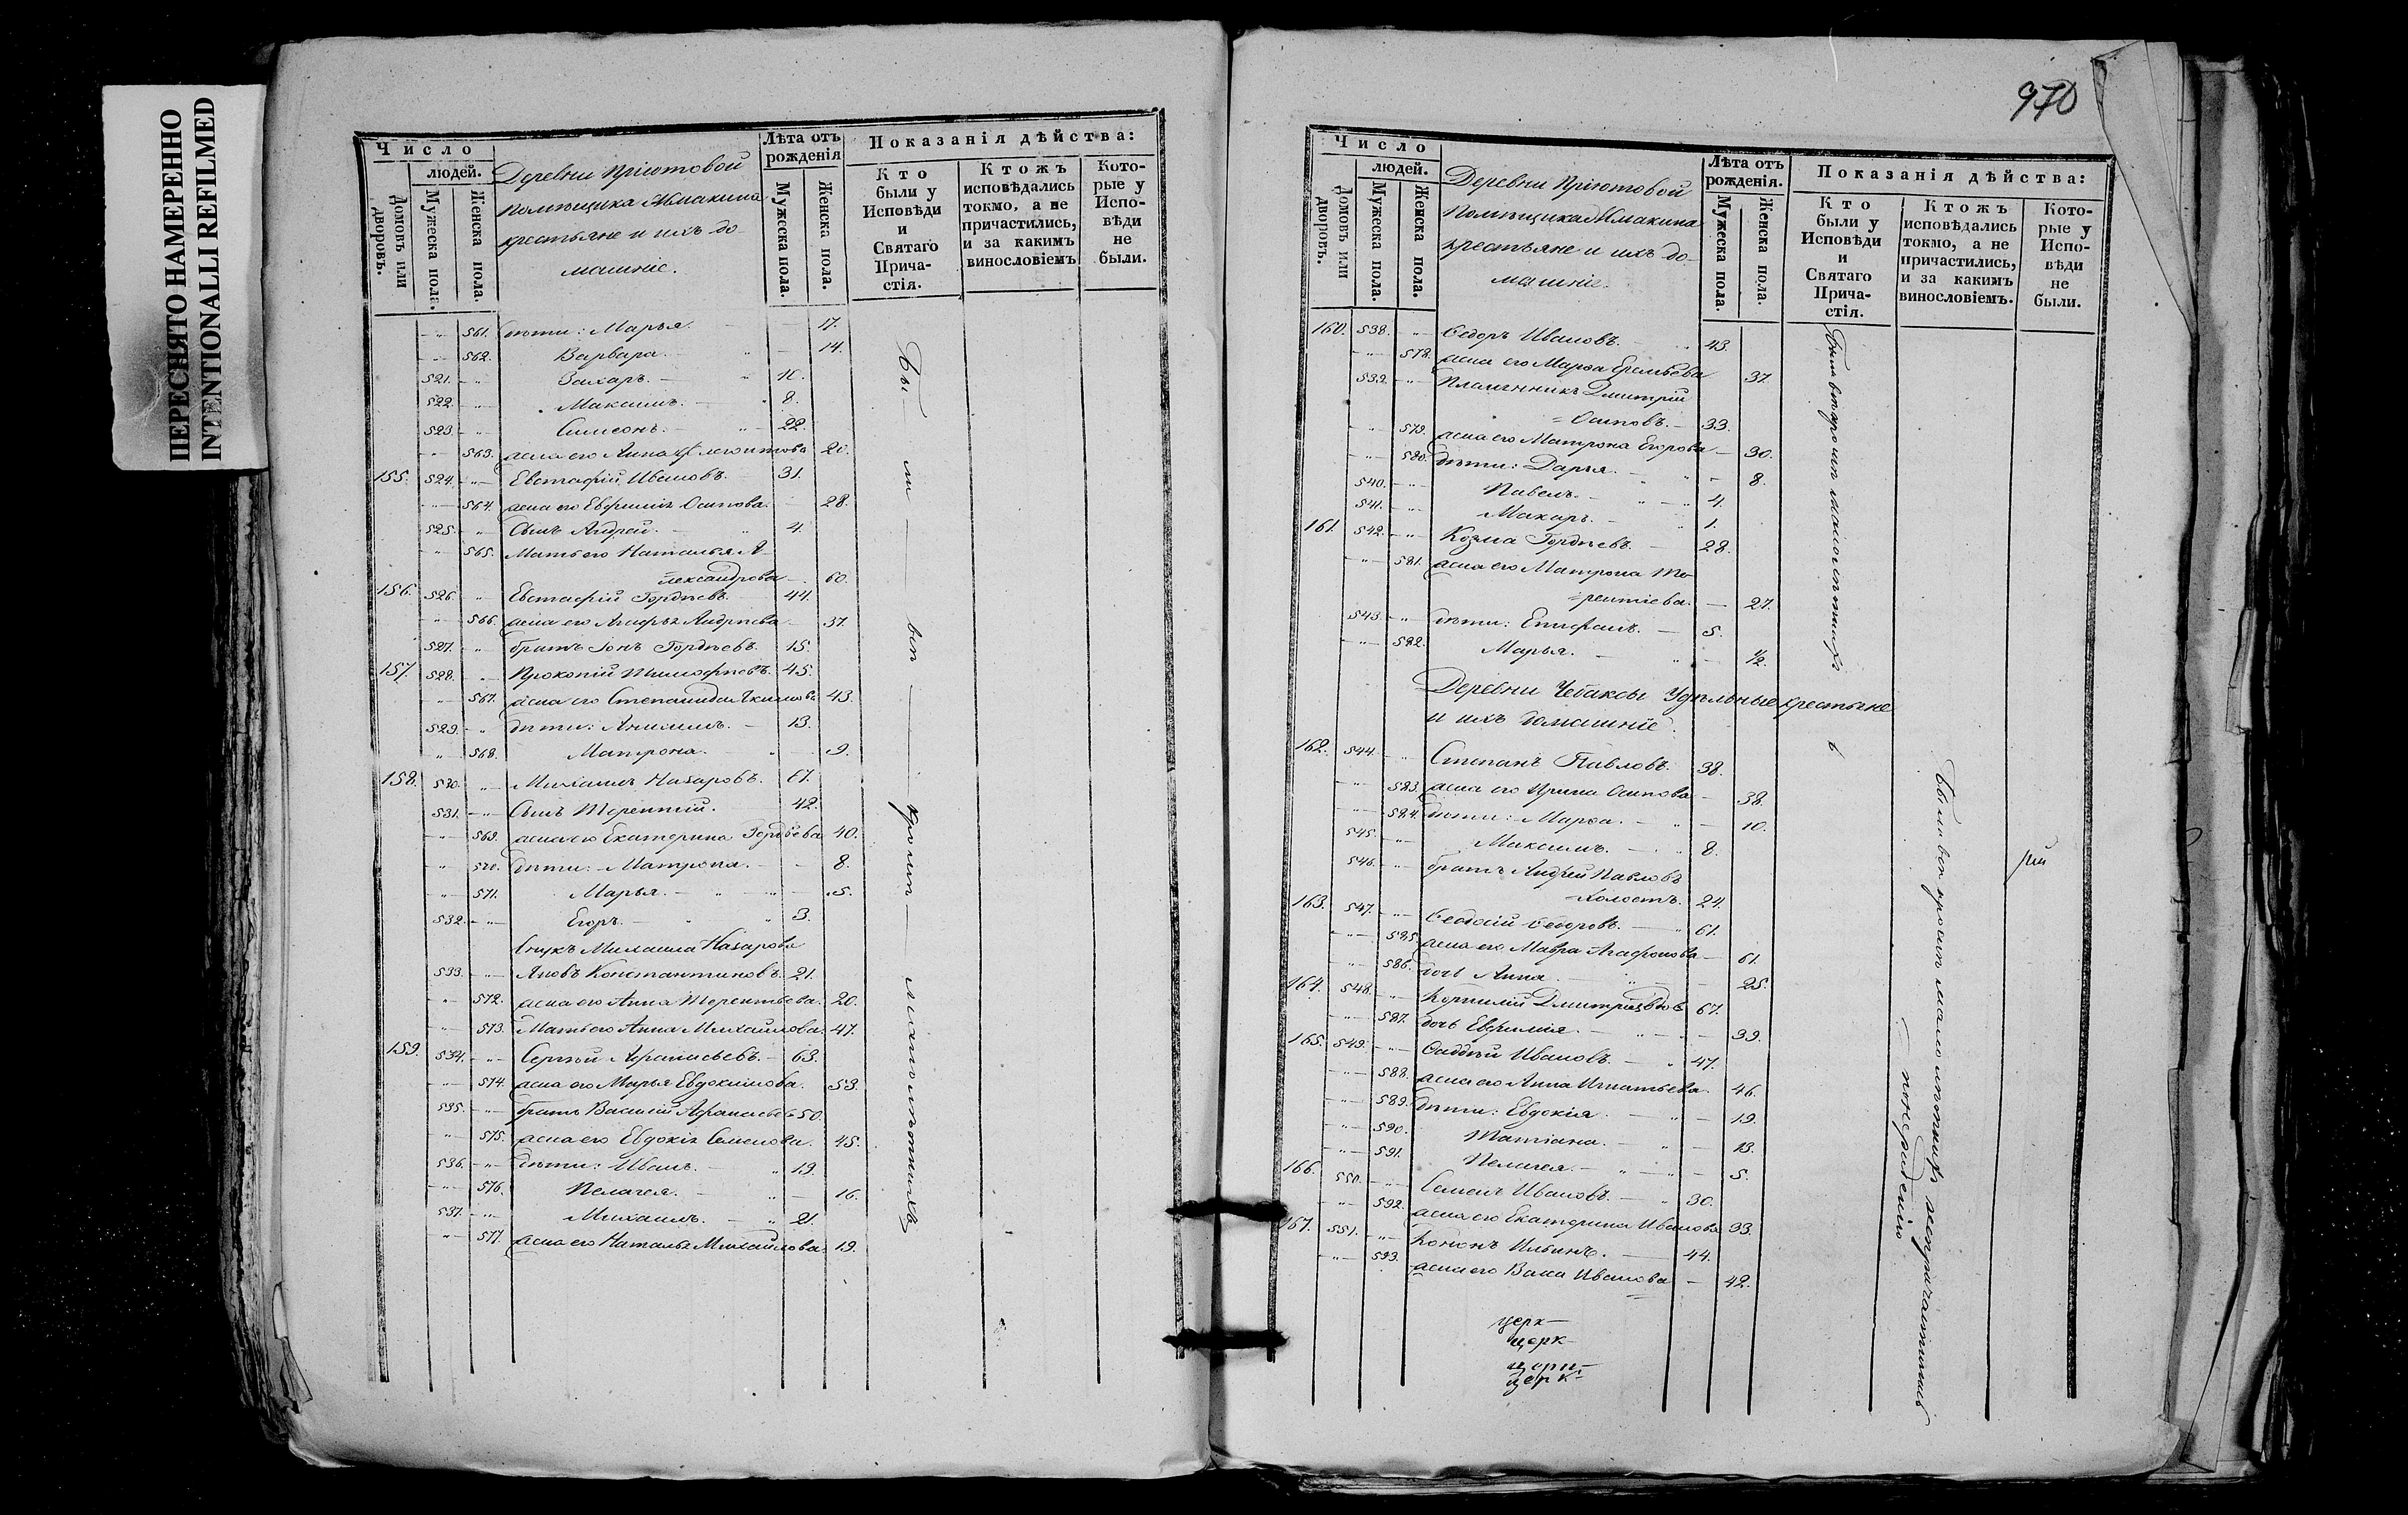 ПЕРЕСНЯТО НАМЕРЕННО
INTENTIONALLI REFILMED
970
Число
людей.
Домовъ или дворовъ.
Мужеска пола.
Женска пола.
Деревни Пріютовой
помѣщика
крестьяне и ихъ до-
машніе.
Лѣта отъ рожденія
Мужеска пола.
Женска пола.
Показанія дѣйства:
Кто были у Исповѣди и Святаго Прича-стія.
Ктожъ исповѣдались токмо, а не причастились, и за какимъ винословіемъ
Кото-рые у Испо-вѣди не были.
561. дѣти: Марья. 17.
562. Варвара. 14.
521. Захаръ. 10.
522. Максимъ. 8.
523. Симеонъ. 22.
563. жена его Анна 20.
155. 524. Евстафій Ивановъ. 31.
564. жена его Евфимія Осипова. 28.
525. Сынъ Андрей. 4.
565. Мать его Наталья А-
лександрова 60.
156. 526. Евстафій Гордѣевъ. 44.
566. жена его Андрѣева 37.
527. братъ Іонъ Гордѣевъ. 15.
157. 528. Прокопій Тимофѣевъ. 45.
567. жена его Степанида Якимова 43.
529. дѣти: 13.
568. Матрона. 9.
158. 530. Михаилъ Назаровъ. 67.
531. Сынъ Терентій. 42.
569. жена его Екатерина Гордѣева 40.
570. дѣти: Матрона. 8.
571. Марья. 5.
532. Егоръ. 3.
внукъ Михаила Назарова
533. Константиновъ. 21.
572. жена его Анна Терентьева. 20.
573. Мать его Анна Михайлова. 47.
159. 534. Сергѣй Афанасьевъ. 63.
574. жена его Марья Евдокимова. 53.
535. братъ Василій Афанасьевъ 50.
575. жена его Евдокія Семенова. 45.
536. дѣти: Иванъ. 19.
576. Пелагея. 16.
537. Михаилъ. 21.
577. жена его Наталья Михайлова. 19.
Были всѣ кромѣ малолѣтнихъ
Число
людей.
Домовъ или дворовъ.
Мужеска пола.
Женска пола.
Деревни Пріютовой
помѣщика
крестьяне и ихъ до-
машніе.
Лѣта отъ рожденія.
Мужеска пола.
Женска пола.
Показанія дѣйства:
Кто были у Исповѣди и Святаго Прича-стія.
Ктожъ исповѣдались токмо, а не причастились, и за какимъ винословіемъ.
Кото-рые у Испо-вѣди не были.
160. 538. Ѳедоръ Ивановъ. 43.
578. жена его Марѳа Еремѣева 37.
539. Племянникъ Дмитрій
Осиповъ. 33.
579. жена его Матрона Егорова 30.
580. дѣти: Дарья. 8.
540. Павелъ. 4.
541. Макаръ. 1.
161. 542. Козма Гордѣевъ. 28.
581. жена его Матрона Те-
рентіева. 27.
543. дѣти: Епифанъ. 5.
582. Марья. ½.
Деревни Чебаксы Удѣльные крестьяне
и ихъ домашніе.
162. 544. Степанъ Павловъ. 38.
583. жена его Ирина Осипова 38.
584. дѣти: Марѳа. 10.
545. Максимъ. 8.
546. братъ Андрей Павловъ
холостъ. 24.
163. 547. Ѳедоровъ. 61.
585. жена его Мавра Агафонова 61.
586. дочь Анна. 25.
164. 548. Корнилій Дмитріевъ вдов 67.
587. дочь Евфимія. 39.
165. 549. Ѳаддѣй Ивановъ. 47.
588. жена его Анна Игнатьева. 46.
589. дѣти: Евдокія. 19.
590. Татіана. 13.
591. Пелагея. 5.
166. 550. Семенъ Ивановъ. 30.
592. жена его Екатерина Иванова 33.
167. 551. Кононъ Ильинъ. 44.
593. жена его Васса Иванова 42.
Были всѣ кромѣ малолѣтнихъ
Были всѣ кромѣ малолѣтнихъ непричастились
по нерадѣнію
рій
церк-
церк-
церк-